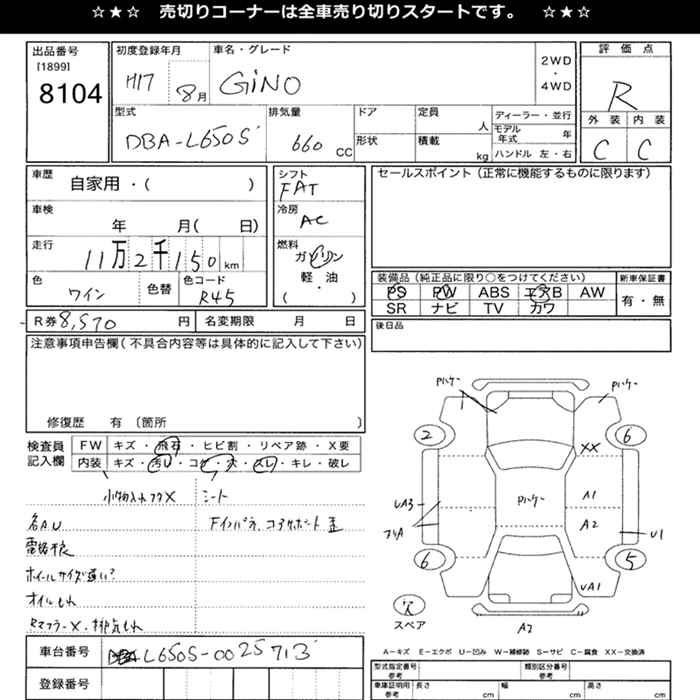 ☆★☆ 売切りコーナーは全車売り切りスタートです。 ☆★☆
出品番号
[1899]
8104
初度登録年月
H17 8月
車名・グレード
GiNO
2WD
・
4WD
評価点
R
外装 内装
C C
型式
DBA-L650S
排気量
660 CC
ドア
形状
定員
人
積載
kg
ディーラー・並行
モデル年式 年
ハンドル 左・右
車歴
自家用・( )
シフト
FAT
セールスポイント(正常に機能するものに限ります)
車検
年 月( 日)
冷房
AC
走行
11万2千150km
燃料
ガソリン
軽・油
・
( )
色
ワイン
色替
色コード
R45
装備品(純正品に限り○をつけてください)
新車保証書
PS PW ABS エアB AW
有・無
SR ナビ TV カワ
R券 8,570 円
名変期限 月 日
後日品
注意事項申告欄(不具合内容等は具体的に記入して下さい)
修復歴 有 〔箇所 〕
検査員
記入欄
FW キズ・飛石・ヒビ割・リペア跡・X要
内装 キズ・汚れ・コゲ・穴・スレ・キレ・破レ
小物入れフタX シート
各A.U
Fインパラ、コアサポート歪
電格不良
ホイールサイズ違い?
オイルもれ
RマフラーX・排気もれ
Pハケー
Pハケー
2
6
XX
UA3
Pハケー
A1
A2
U1
6
5
UA1
スペア
A2
A-キズ E-エクボ U-凹み W-補修跡 S-サビ C-腐食 XX-交換済
車台番号
L650S-0025713
登録番号
型式指定番号
参考
類別区分番号
参考
車庫証明用
参考
長さ cm
幅 cm
高さ cm